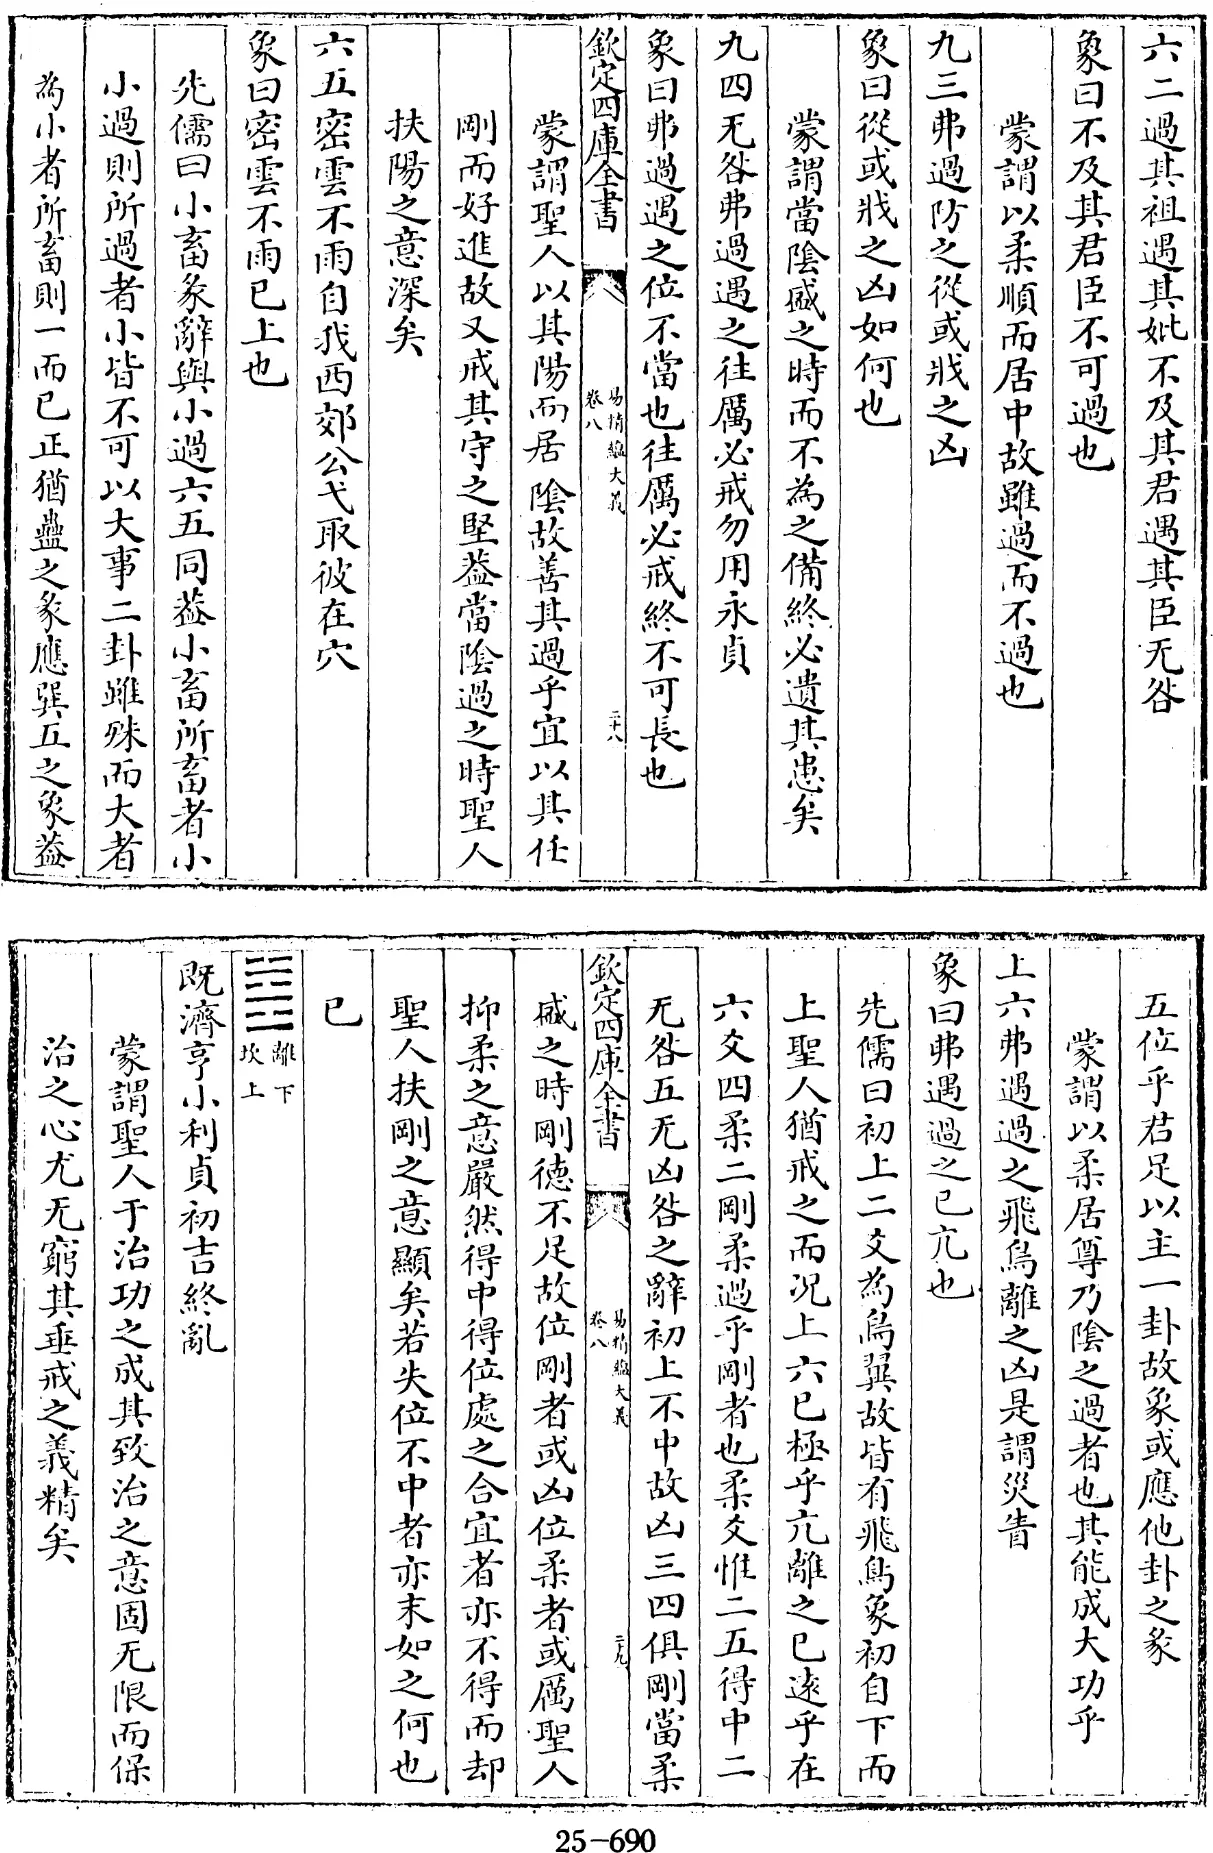 六二過其祖遇其妣不及其君遇其臣无咎
象曰不及其君臣不可過也
蒙謂以柔順而居中故雖過而不過也
九三弗過防之從或戕之凶
象曰從或戕之凶如何也
蒙謂當陰盛之時而不為之備終必遺其患矣
九四无咎弗過遇之往厲必戒勿用永貞
象曰弗過遇之位不當也往厲必戒終不可長也
欽定四庫全書
易精蘊大義
卷八
二十八
蒙謂聖人以其陽而居陰故善其過乎宜以其任
剛而好進故又戒其守之堅葢當陰過之時聖人
扶陽之意深矣
六五密雲不雨自我西郊公弋取彼在穴
象曰密雲不雨已上也
先儒曰小畜彖辭與小過六五同葢小畜所畜者小
小過則所過者小皆不可以大事二卦雖殊而大者
為小者所畜則一而已正猶蠱之彖應巽五之象葢
五位乎君足以主一卦故象或應他卦之彖
蒙謂以柔居尊乃陰之過者也其能成大功乎
上六弗遇過之飛鳥離之凶是謂災眚
象曰弗遇過之已亢也
先儒曰初上二爻為鳥翼故皆有飛鳥象初自下而
上聖人猶戒之而况上六已極乎亢離之已遠乎在
六爻四柔二剛柔過乎剛者也柔爻惟二五得中二
无咎五无凶咎之辭初上不中故凶三四俱剛當柔
欽定四庫全書
易精蘊大義
卷八
二十九
盛之時剛德不足故位剛者或凶位柔者或厲聖人
抑柔之意嚴然得中得位處之合宜者亦不得而却
聖人扶剛之意顯矣若失位不中者亦末如之何也
已
離下
坎上
既濟亨小利貞初吉終亂
蒙謂聖人于治功之成其致治之意固无限而保
治之心尤无窮其垂戒之義精矣
25-690